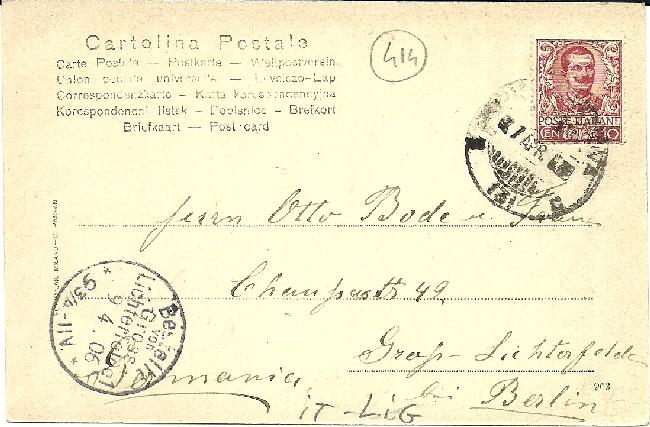 Cartolina Postale
414
Carte Postale — Postkarte — Weltpostverein
Union postale universelle — Levelezo-Lap
Correspondenzkarte — Karta korespondencyjna
Korespondencni listek — Dopisnice — Brefkort
Briefkaart — Post card
POSTE ITALIANE
CENT. 10
7 APR
(3)
Herrn Otto Bode u. Frau
Chaussestr 49
Gross-Lichterfelde
bei Berlin
Germania
IT-LIG
Bestellt
von
Gross-
Lichterfelde 1
9. 4. 06
* 9 3/4-11 V *